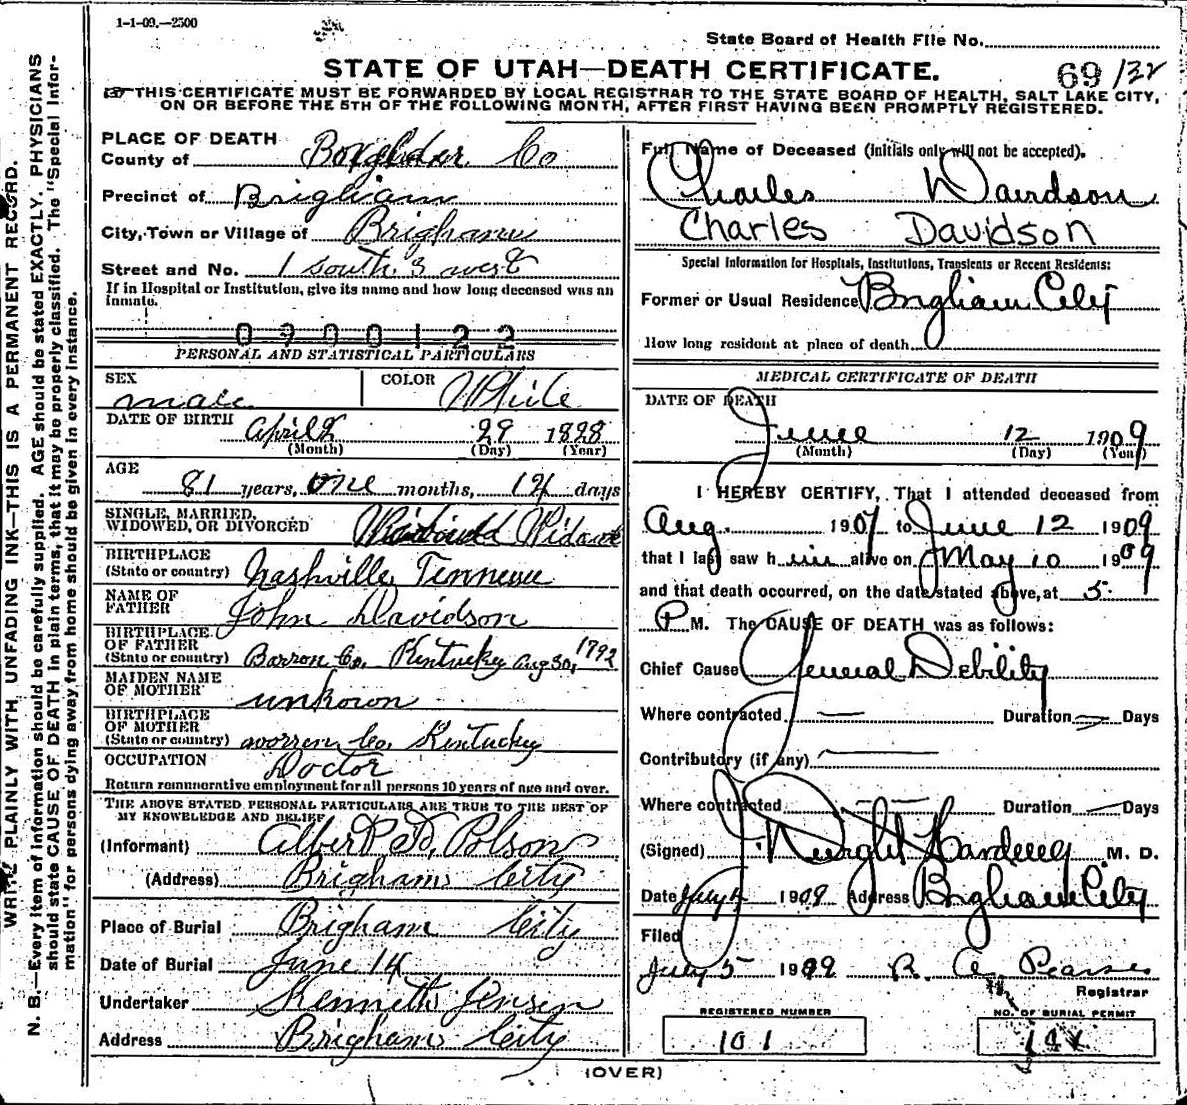 1-1-09.—2500
State Board of Health File No.
STATE OF UTAH—DEATH CERTIFICATE.
69/32
THIS CERTIFICATE MUST BE FORWARDED BY LOCAL REGISTRAR TO THE STATE BOARD OF HEALTH, SALT LAKE CITY,
ON OR BEFORE THE 5TH OF THE FOLLOWING MONTH, AFTER FIRST HAVING BEEN PROMPTLY REGISTERED.
WRITE PLAINLY WITH UNFADING INK—THIS IS A PERMANENT RECORD.
N. B.—Every item of information should be carefully supplied. AGE should be stated EXACTLY. PHYSICIANS
should state CAUSE OF DEATH in plain terms, that it may be properly classified. The "Special Infor-
mation" for persons dying away from home should be given in every instance.
PLACE OF DEATH
County of Boxelder Co
Precinct of Brigham
City, Town or Village of Brigham
Street and No. 1 south 3 west
If in Hospital or Institution, give its name and how long deceased was an
inmate.
0900122
PERSONAL AND STATISTICAL PARTICULARS
SEX male COLOR White
DATE OF BIRTH April 29 1828
(Month) (Day) (Year)
AGE
81 years, one months, 14 days
SINGLE, MARRIED,
WIDOWED, OR DIVORCED
BIRTHPLACE
(State or country) Nashville Tennessee
NAME OF
FATHER John Davidson
BIRTHPLACE
OF FATHER
(State or country) Barron Co. Kentucky Aug 30, 1792
MAIDEN NAME
OF MOTHER unkown
BIRTHPLACE
OF MOTHER
(State or country) worren Co. Kentucky
OCCUPATION Doctor
Return remunerative employment for all persons 10 years of age and over.
THE ABOVE STATED PERSONAL PARTICULARS ARE TRUE TO THE BEST OF
MY KNOWLEDGE AND BELIEF
(Informant) Albert D. Polson
(Address) Brigham City
Place of Burial Brigham City
Date of Burial June 14
Undertaker Kenneth Jensen
Address Brigham City
Full Name of Deceased (Initials only will not be accepted).
Charles Davidson
Charles Davidson
Special Information for Hospitals, Institutions, Transients or Recent Residents:
Former or Usual Residence Brigham City
How long resident at place of death
MEDICAL CERTIFICATE OF DEATH
DATE OF DEATH
June 12 1909
(Month) (Day) (Year)
I HEREBY CERTIFY, That I attended deceased from
Aug. 1907 to June 12 1909
that I last saw him alive on May 10 1909
and that death occurred, on the date stated above, at 5
P M. The CAUSE OF DEATH was as follows:
Chief Cause General Debility
Where contracted — Duration Days
Contributory (if any) —
Where contracted — Duration — Days
(Signed) J. Dwight Harding M. D.
Date July 1909 Address Brigham City
Filed
July 5 1909 R. A. Pearse
Registrar
REGISTERED NUMBER
101
NO. OF BURIAL PERMIT
(OVER)